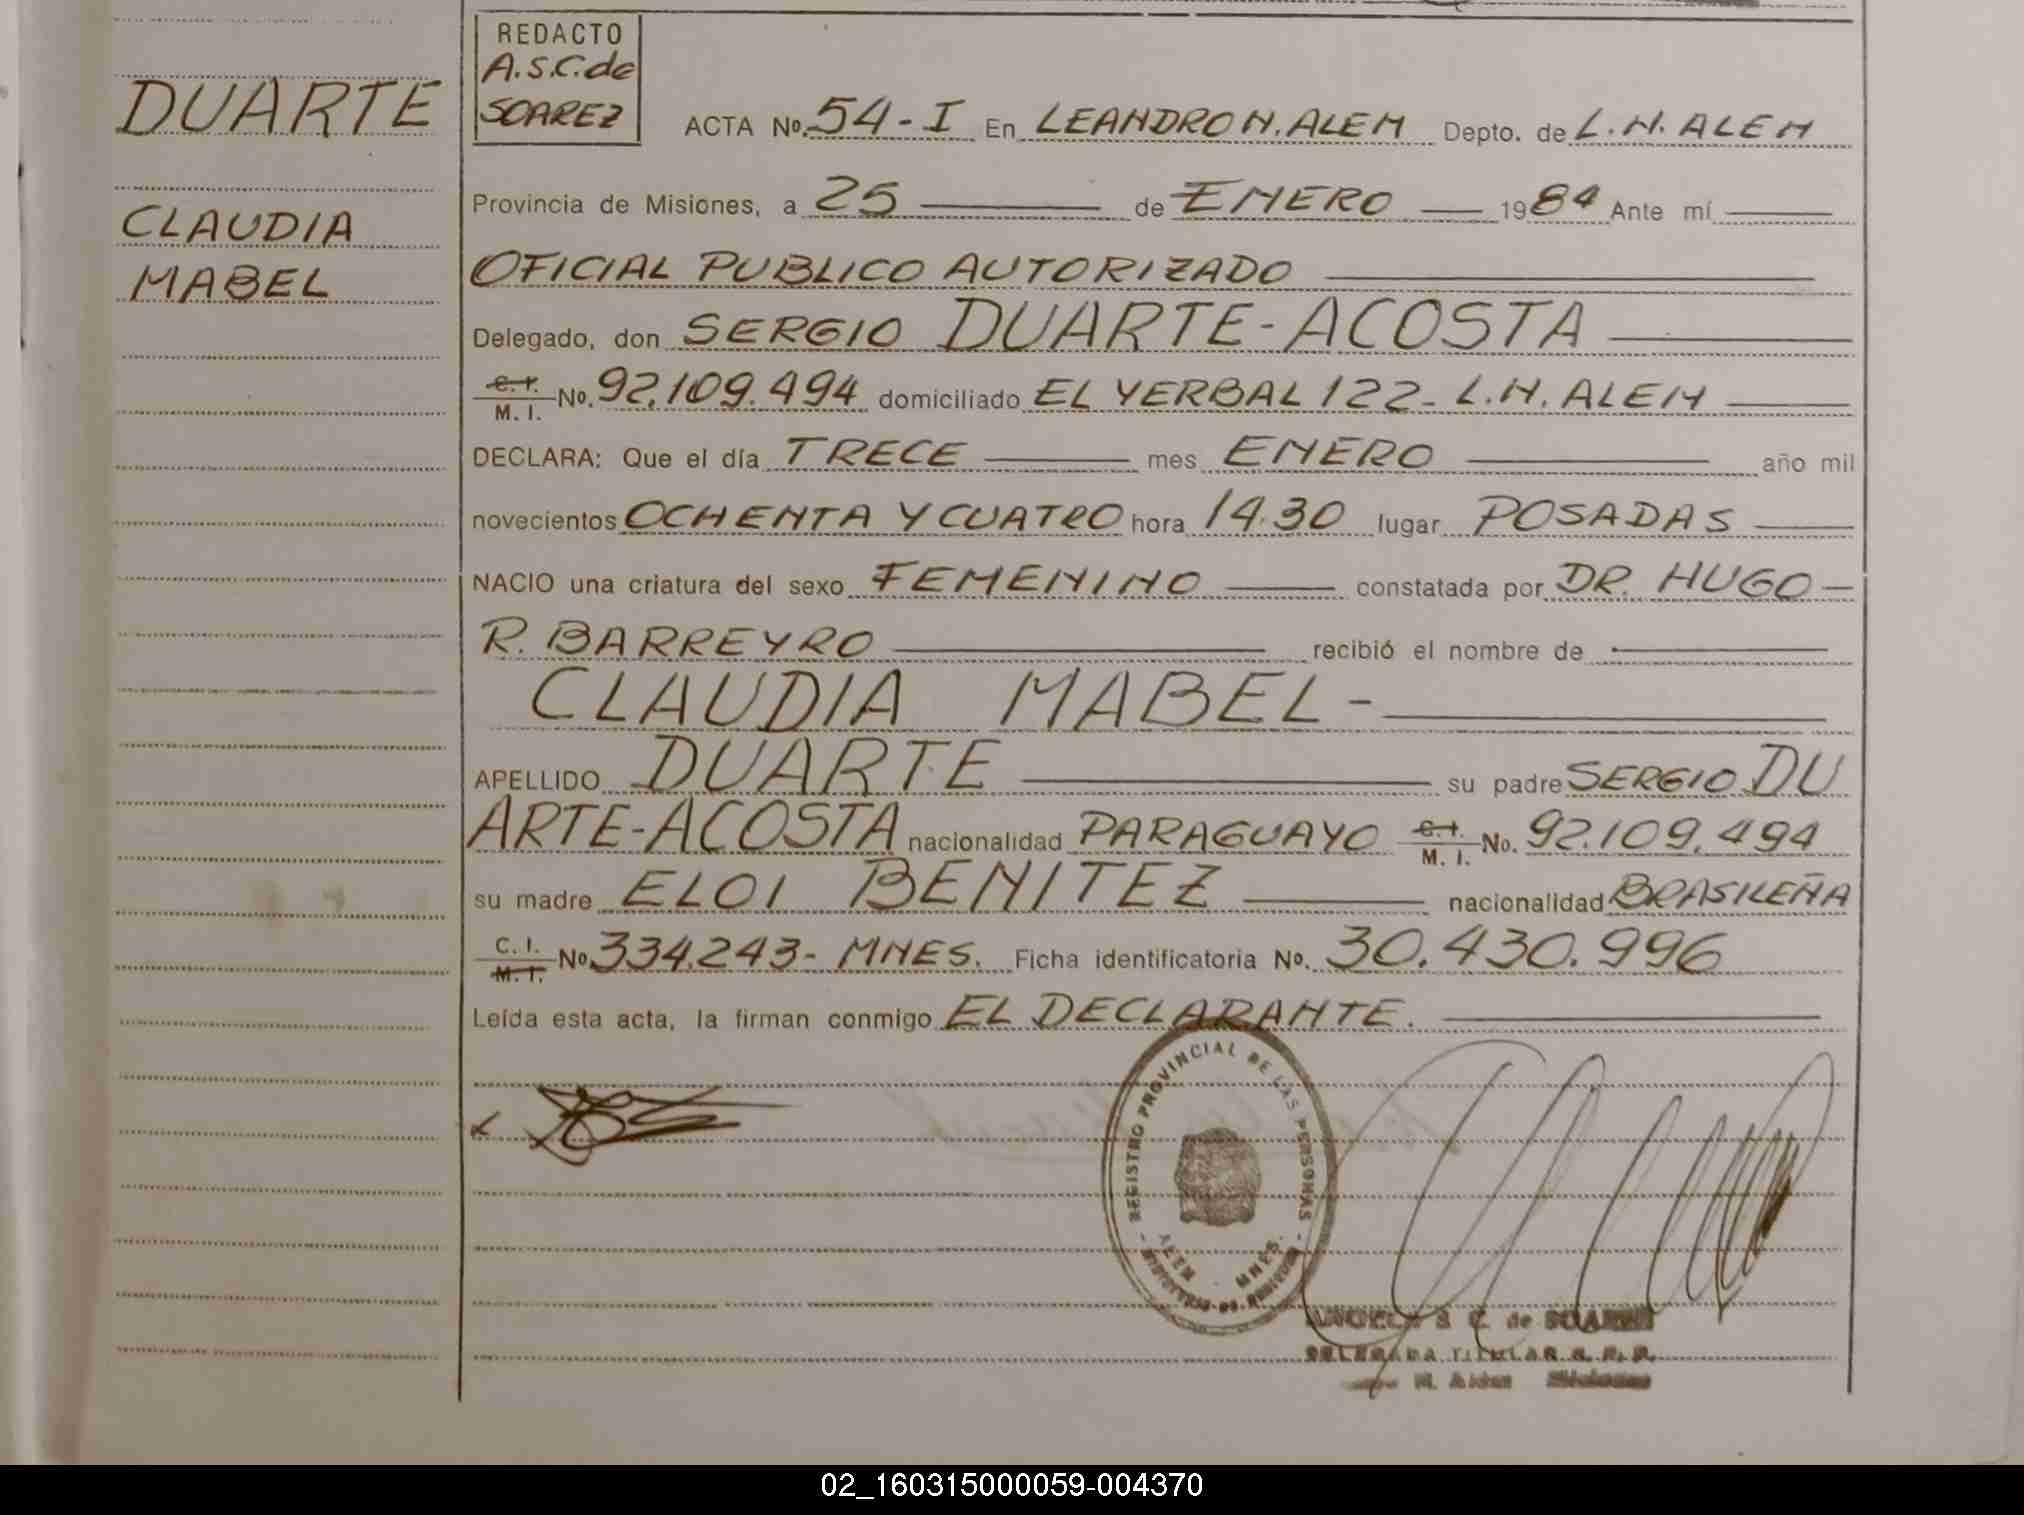 DUARTE
CLAUDIA
MABEL
REDACTO
A.S.C. de
SOAREZ
ACTA No. 54-I En LEANDRO N. ALEM Depto. de L.N. ALEM
Provincia de Misiones, a 25 de ENERO 1984 Ante mí
OFICIAL PUBLICO AUTORIZADO
Delegado, don SERGIO DUARTE-ACOSTA
C. I. M. I. No. 92.109.494 domiciliado EL YERBAL 122- L.N. ALEM
DECLARA: Que el día TRECE mes ENERO año mil
novecientos OCHENTA Y CUATRO hora 14.30 lugar POSADAS
NACIO una criatura del sexo FEMENINO constatada por DR. HUGO
R. BARREYRO recibió el nombre de
CLAUDIA MABEL-
APELLIDO DUARTE su padre SERGIO DU
ARTE-ACOSTA nacionalidad PARAGUAYO C. I. M. I. No. 92.109.494
su madre ELOI BENITEZ nacionalidad BRASILEÑA
C. I. M. I. No. 334.243- MNES. Ficha identificatoria No. 30.430.996
Leída esta acta, la firman conmigo EL DECLARANTE.
REGISTRO PROVINCIAL DE LAS PERSONAS
ALEM MNES.
ANGELA S. C. de SOAREZ
DELEGADA TITULAR R. P. P.
N. Alem Misiones
02_160315000059-004370